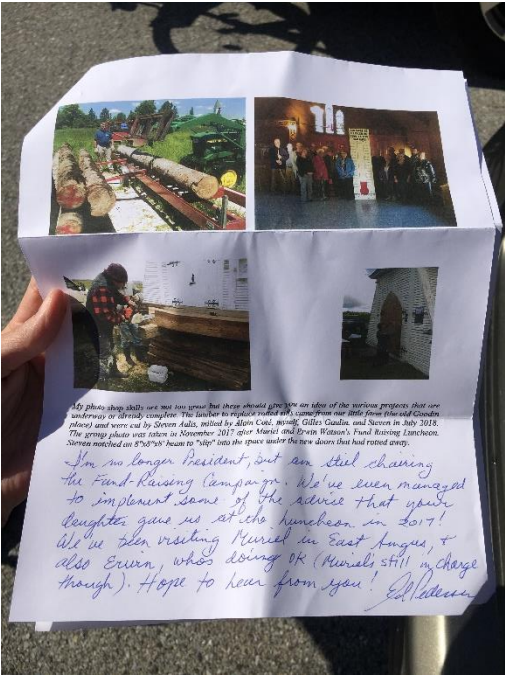 My photo shop skills are not too great but these should give you an idea of the various projects that are
underway or already complete. The lumber to replace rotted sills came from our little farm (the old Goodin
place) and were cut by Steven Aulis, milled by Aloin Coté, myself, Gilles Gaulin, and Steven in July 2018.
The group photo was taken in November 2017 after Muriel and Erwin Watson's Fund Raising Luncheon.
Steven notched an 8"x8"x8' beam to "slip" into the space under the new doors that had rotted away.
I'm no longer President, but am still chairing
the Fund-Raising Campaign. We've even managed
to implement some of the advice that your
daughter gave us at the luncheon in 2017!
We've been visiting Muriel in East Angus, &
also Erwin, who's doing OK (Muriel's still in charge
though). Hope to hear from you!
Ed Pedersen